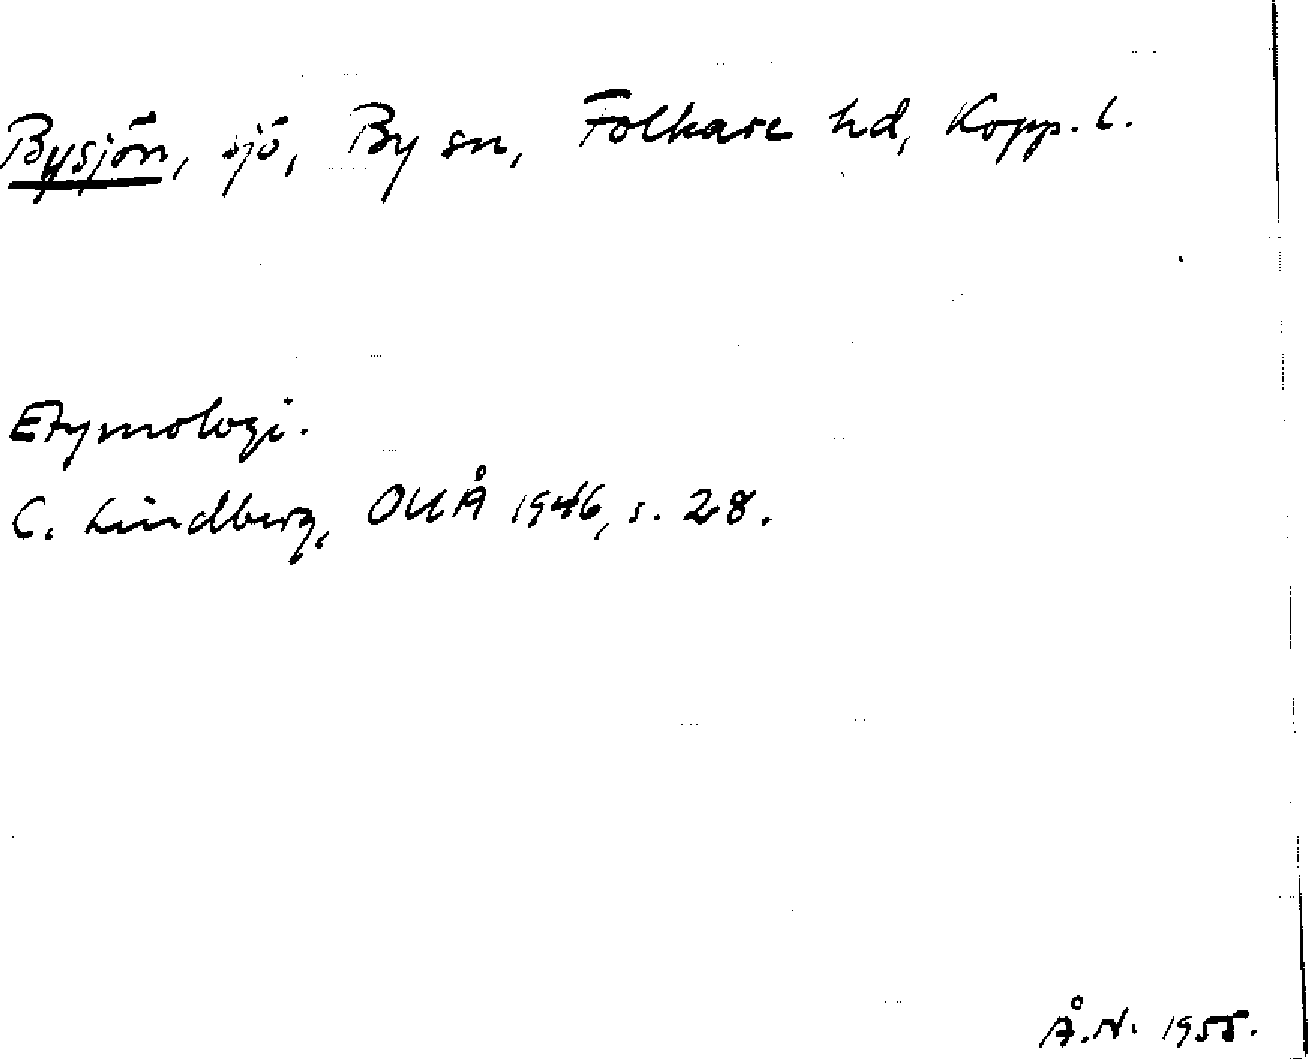 Bysjön, sjö, By sn, Folkare hd, Kopp. l.
Etymologi.
C. Lindberg, OUÅ 1946, s. 28.
Å.N. 1955.